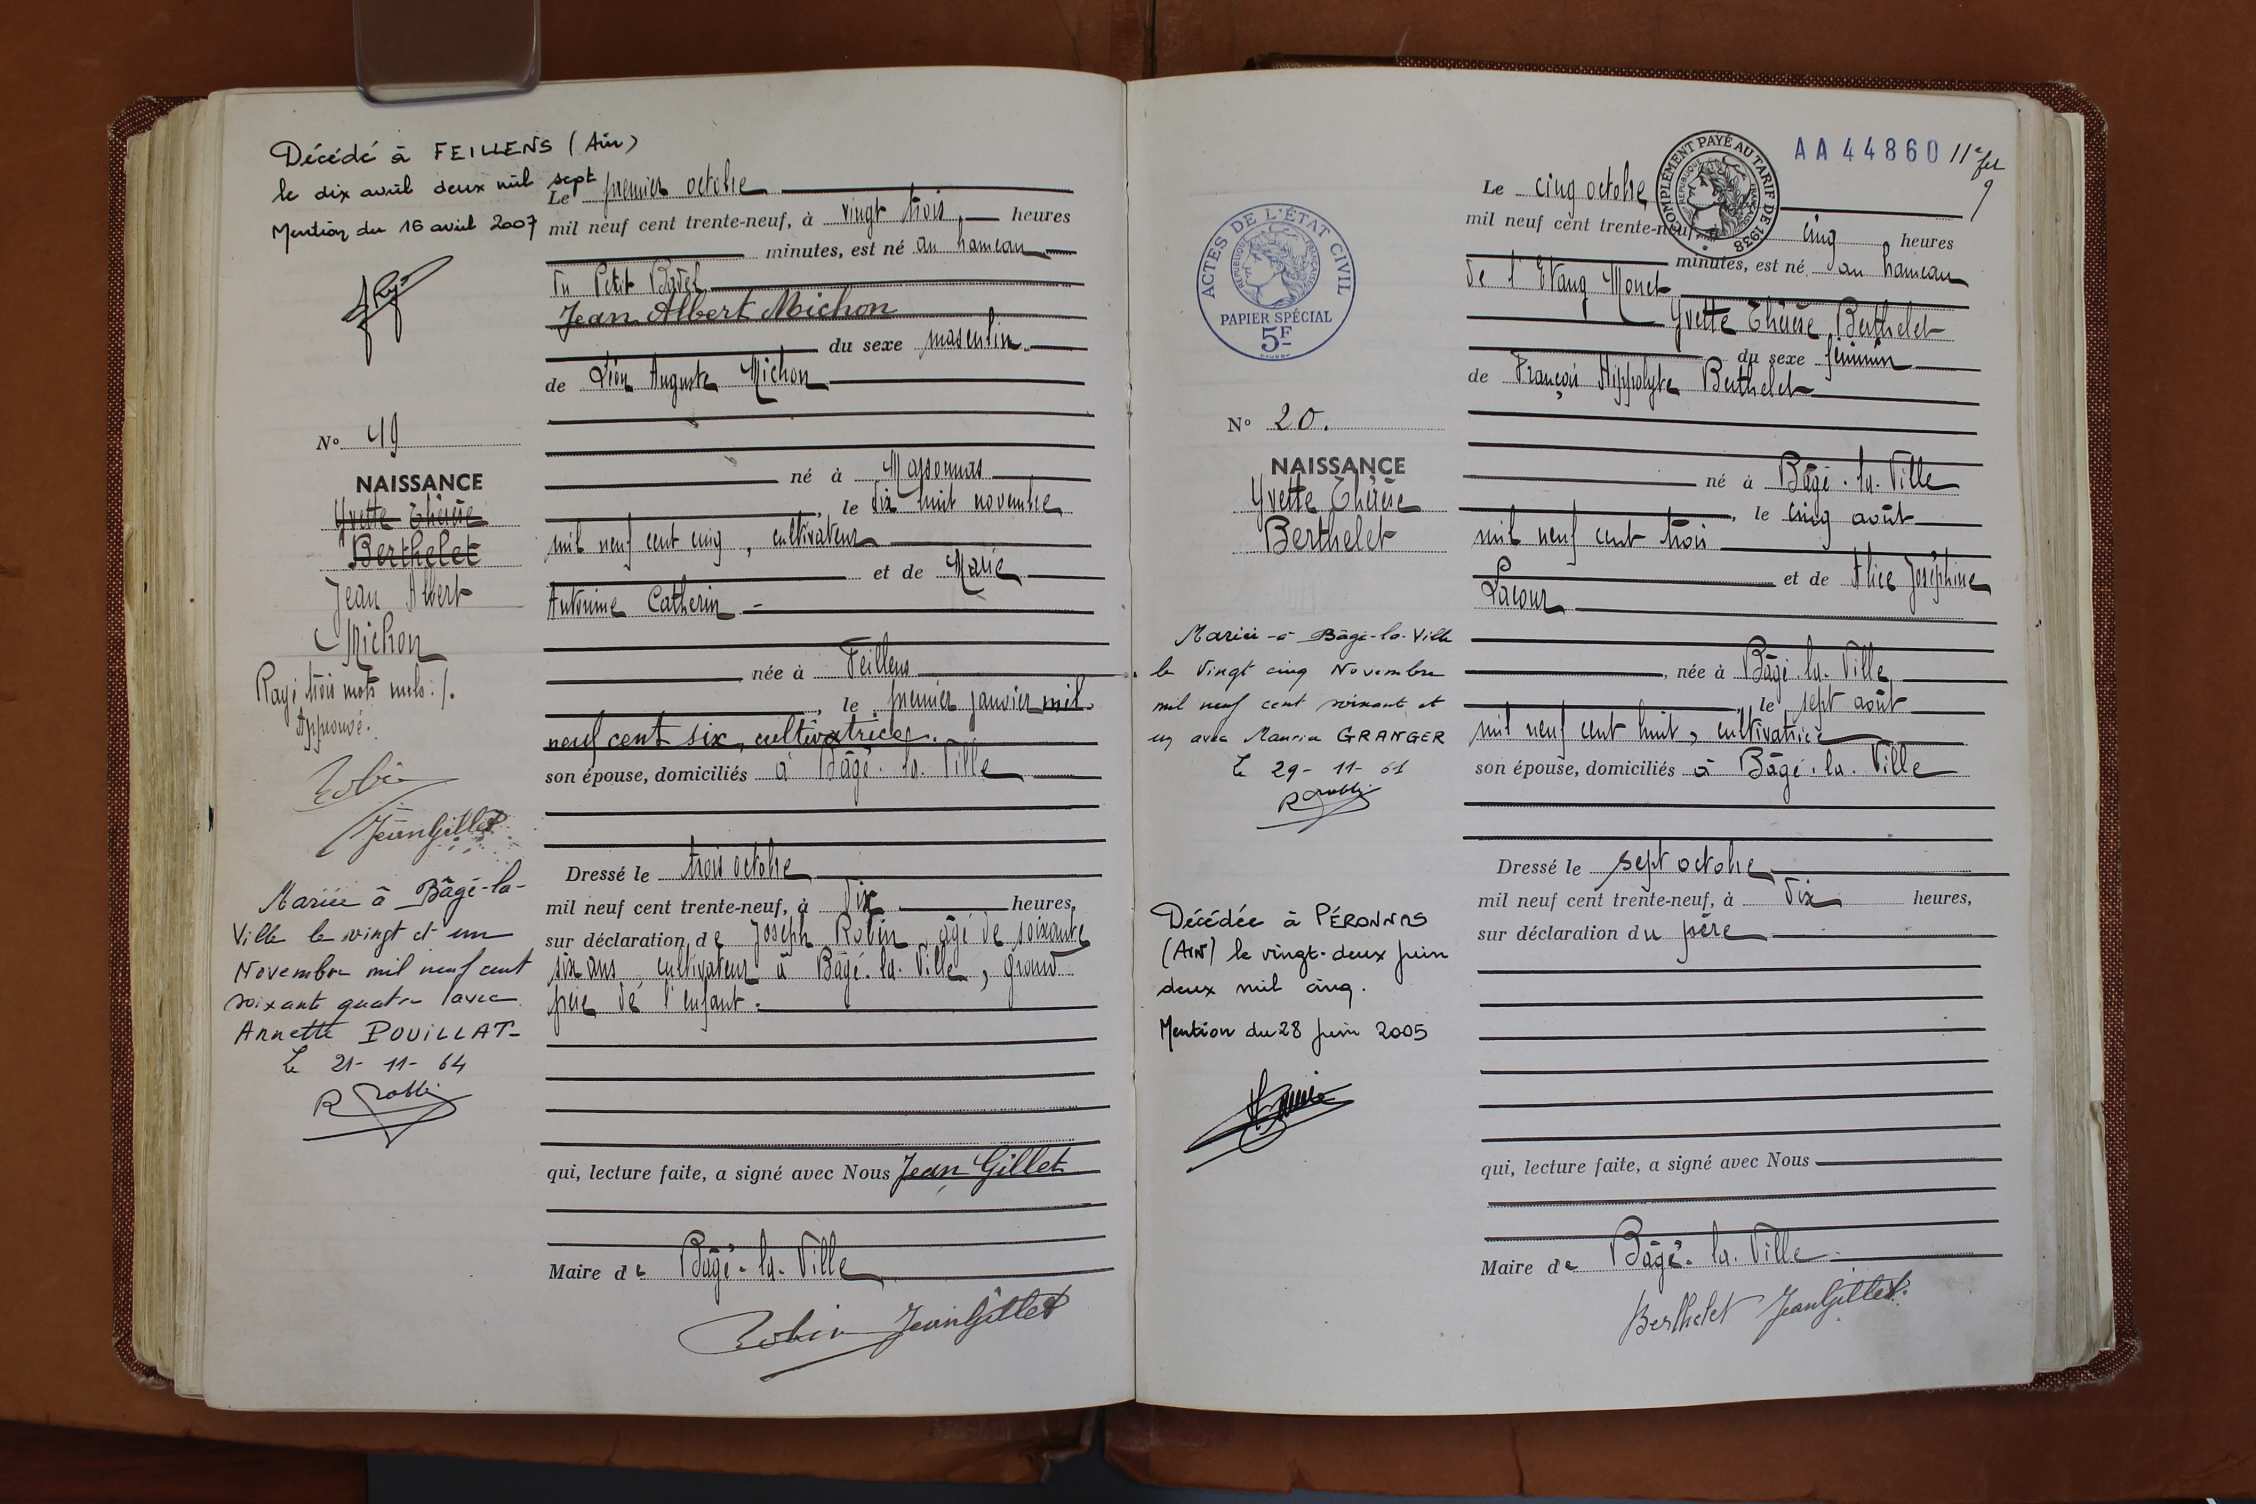 Décédé à FEILLENS (Ain)
le dix avril deux mil sept
Mention du 16 avril 2007
N° 19
NAISSANCE
Yvette Thérèse
Berthelet
Jean Albert
Michon
Rayé trois mots nuls
Approuvé.
Robin
Jean Gillet
Mariée à Bâgé-la-
Ville le vingt et un
Novembre mil neuf cent
soixante quatre avec
Annette POUILLAT
Le 21-11-64
Le premier octobre
mil neuf cent trente-neuf, à vingt trois heures
minutes, est né au hameau
du Petit
Jean Albert Michon
du sexe masculin
de Léon Auguste Michon
né à
le dix huit novembre
mil neuf cent cinq, cultivateur
et de Marie
Antonine Catherin
née à Feillens
, le premier janvier mil
neuf cent six, cultivatrice
son épouse, domiciliés à Bâgé-la-Ville
Dressé le trois octobre
mil neuf cent trente-neuf, à dix heures,
sur déclaration de Joseph Robin âgé de soixante
six ans cultivateur à Bâgé-la-Ville, grand
père de l'enfant.
qui, lecture faite, a signé avec Nous Jean Gillet
Maire de Bâgé-la-Ville
Robin Jean Gillet
AA 44860
11e
9
COMPLÉMENT PAYÉ AU TARIF DE 1938
RÉPUBLIQUE FRANÇAISE
ACTES DE L'ÉTAT CIVIL
RÉPUBLIQUE FRANÇAISE
PAPIER SPÉCIAL
5F
N° 20.
NAISSANCE
Yvette Thérèse
Berthelet
Mariée à Bâgé-la-Ville
le Vingt cinq Novembre
mil neuf cent soixant et
un avec Maurice GRANGER
Le 29-11-61
Décédée à PÉRONNAS
(AIN) le vingt-deux juin
deux mil cinq.
Mention du 28 juin 2005
Le cinq octobre
mil neuf cent trente-neuf, à cinq heures
minutes, est né au hameau
de l'Etang Monet
Yvette Thérèse Berthelet
du sexe féminin
de François Hippolyte Berthelet
né à Bâgé-la-Ville
, le cinq août
mil neuf cent trois
et de Alice Joséphine
Lacour
, née à Bâgé-la-Ville
, le sept août
mil neuf cent huit, cultivatrice
son épouse, domiciliés à Bâgé-la-Ville
Dressé le sept octobre
mil neuf cent trente-neuf, à dix heures,
sur déclaration du père
qui, lecture faite, a signé avec Nous
Maire de Bâgé-la-Ville
Berthelet Jean Gillet